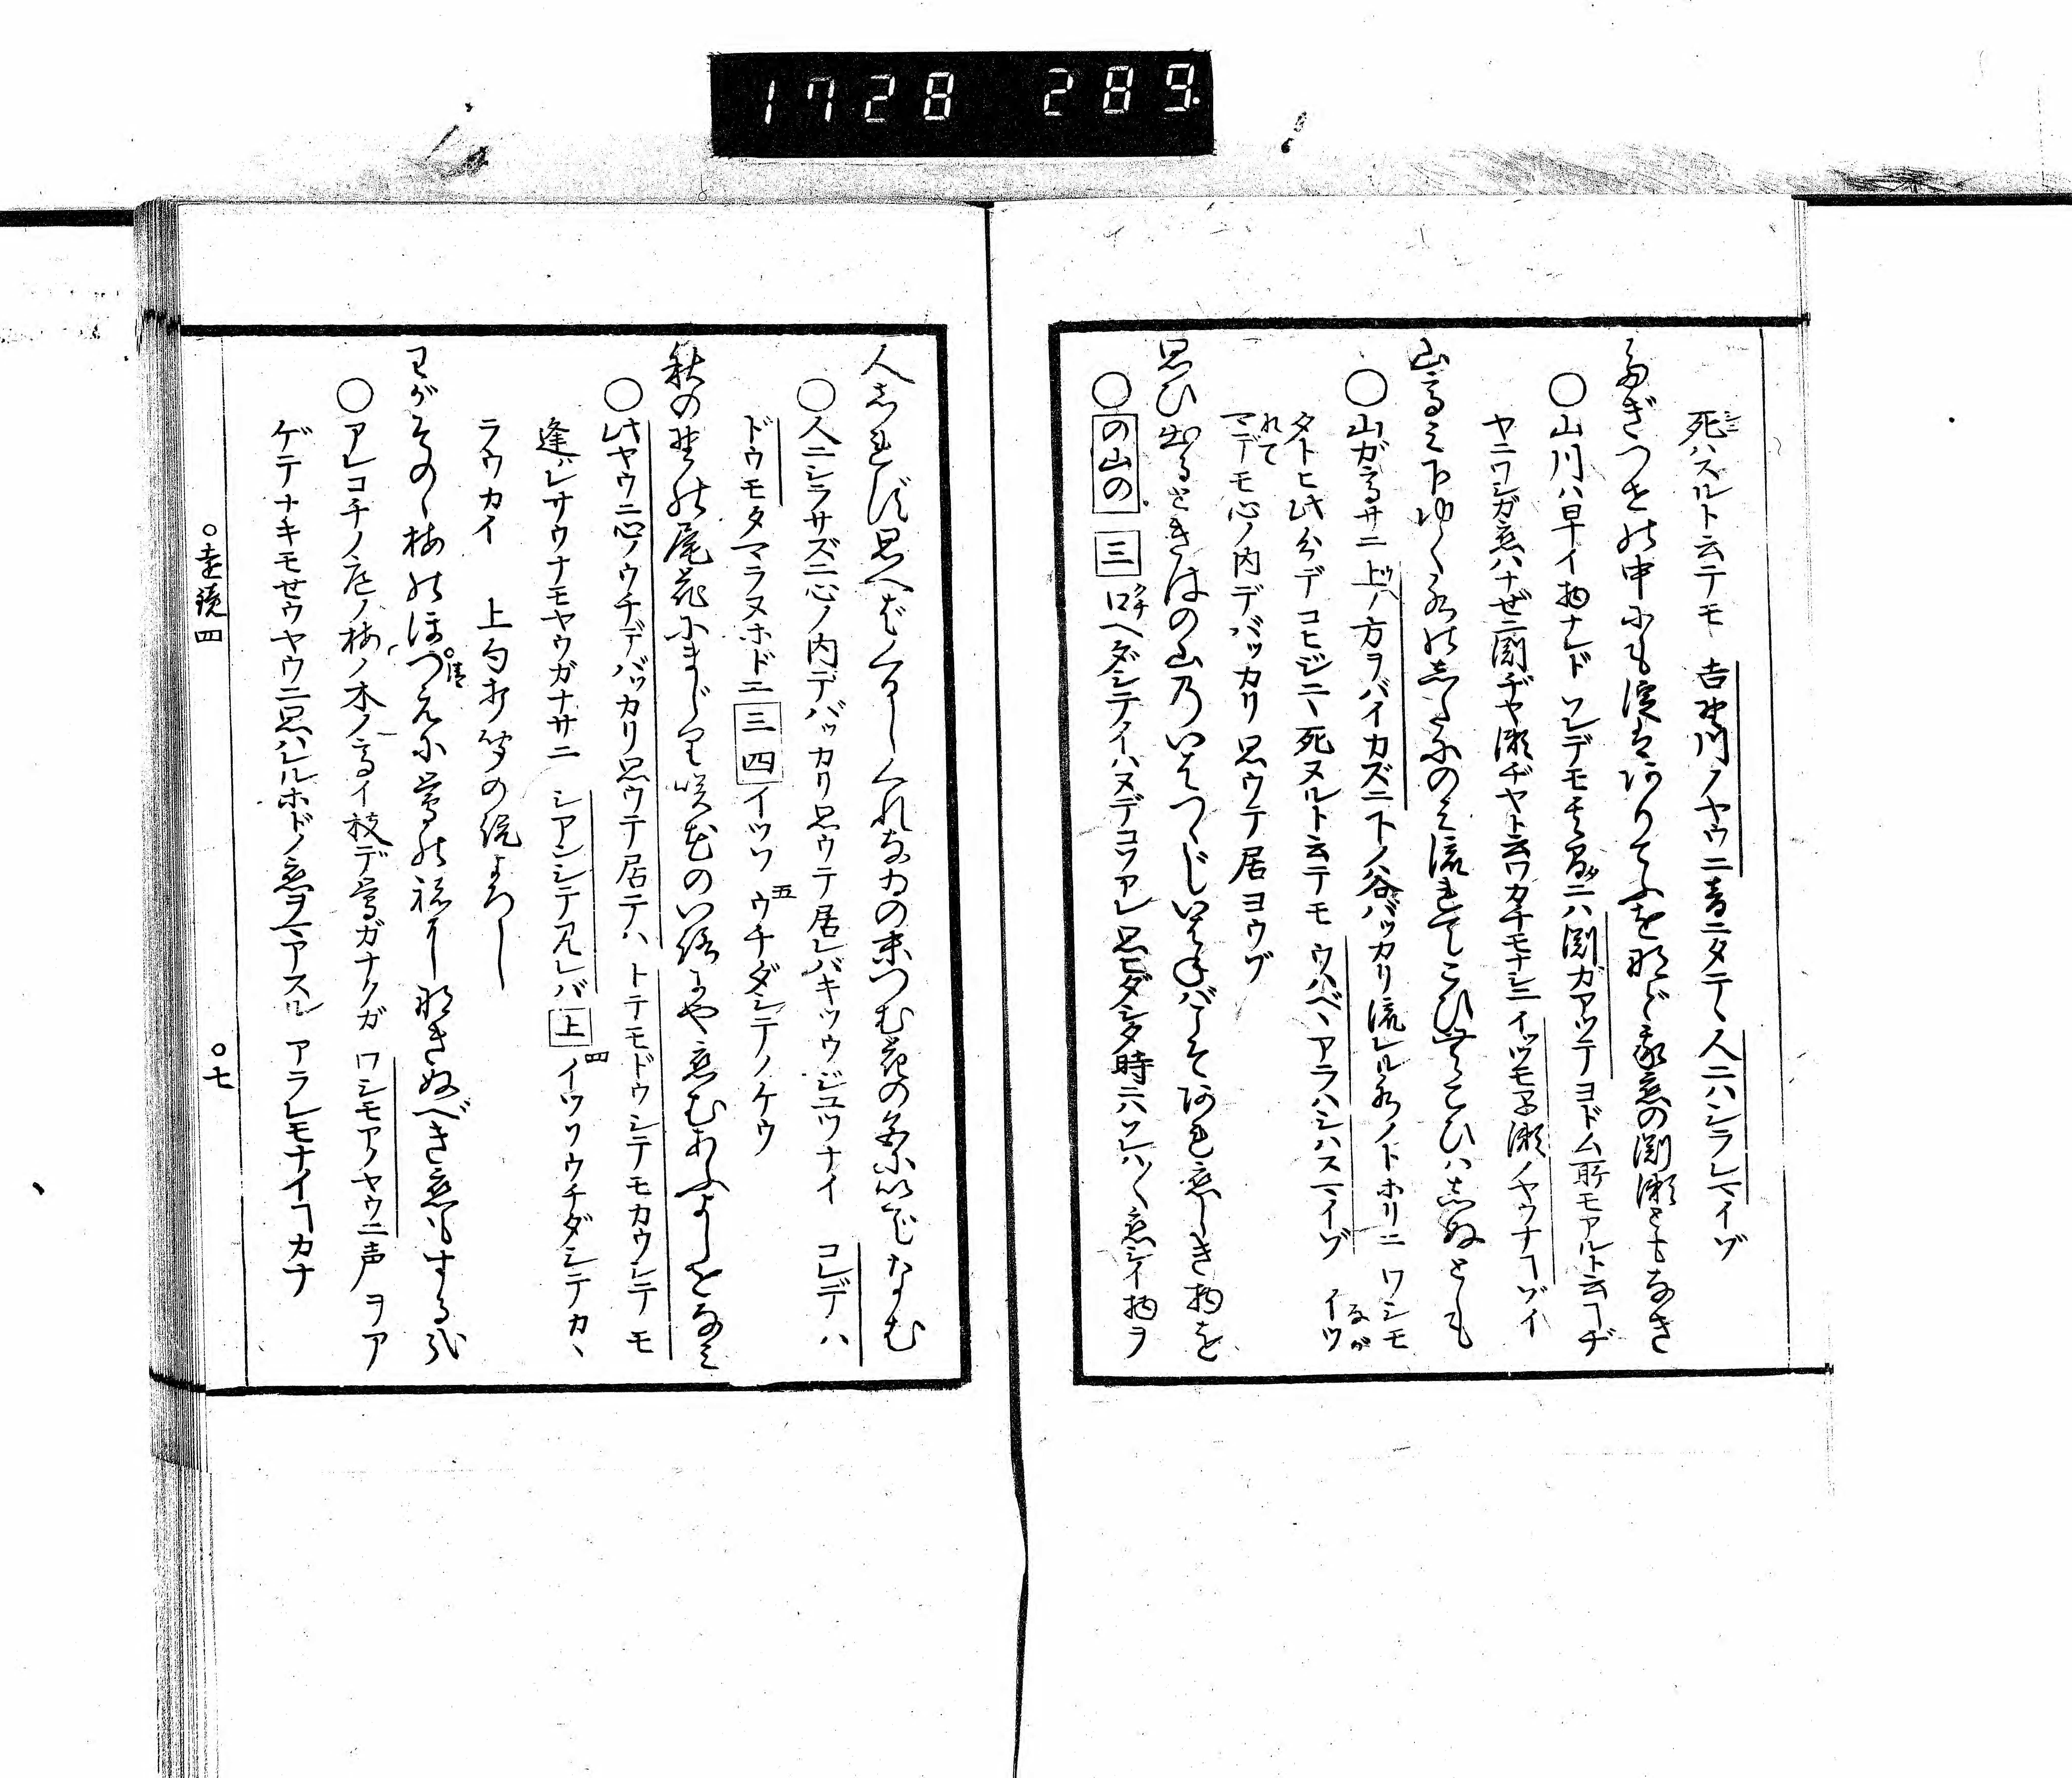 1728 289
死ハスルト云テモ 吉野川ノヤウニ音ニタテヽ人ニハシラレマイゾ
たぎつせの中にも淀はありてふを など我恋の淵瀬ともなき
○山川ハ早イ物ナレド ソレデモ 淵ガアツテヨドム所モアルト云ヿヂ
ヤニワシガ恋ハナゼニ淵ヂヤ瀬ヂヤト云ワカチモナシニ イツツモ瀬ノヤウナヿゾイ
山高み下ゆく水の下にのみ流れてこひむこひは死ぬとも
○山ガ高サニ 上ノ方ヲバイカズニ下ノ谷バッカリ流レル水ノトホリニ ワシモ
タトヒ此分デコヒジニヽ死ヌルト云テモ ウハベヽアラハシハスマイゾ イツ
ながれて
マデモ心ノ内デバッカリ思ウテ居ヨウゾ
思ひ出るときはの山のいはつゝじいはねばこそあれ恋しき物を
○の山の 三 口ヘダシテイハヌデコソアレ 思ヒダシタ時ニハ 恋シイ物ヲ
人しれず思へばくるしくれなゐの末つむ花の色に出でなむ
○人ニシラサズニ心ノ内デバッカリ思ウテ居レバキツウジユツナイ コレデハ
ドウモタマラヌホドニ 三 四 イツソ 五 ウチダシテノケウ
秋の野の尾花にまじり咲花の色にや恋むあふよしをなみ
○此ヤウニ心ノウチデバッカリ思ウテ居テハ トテモドウシテモカウシテモ
逢レサウナモヤウガナサニ シアンシテ見レバ 上 四 イツソウチダシテカヽ
ラウカイ 上句打聞の説よろし
わがそのゝ梅のほつえに鶯の 音になきぬべき恋もする哉
○アレコチノ庭ノ梅ノ木ノ高イ枝デ鶯ガナクガ ワシモアノヤウニ声ヲア
ゲテナキモセウヤウニ思ハレルホドノ恋ヲマアスル アラレモナイヿカナ
○遠鏡四
○七